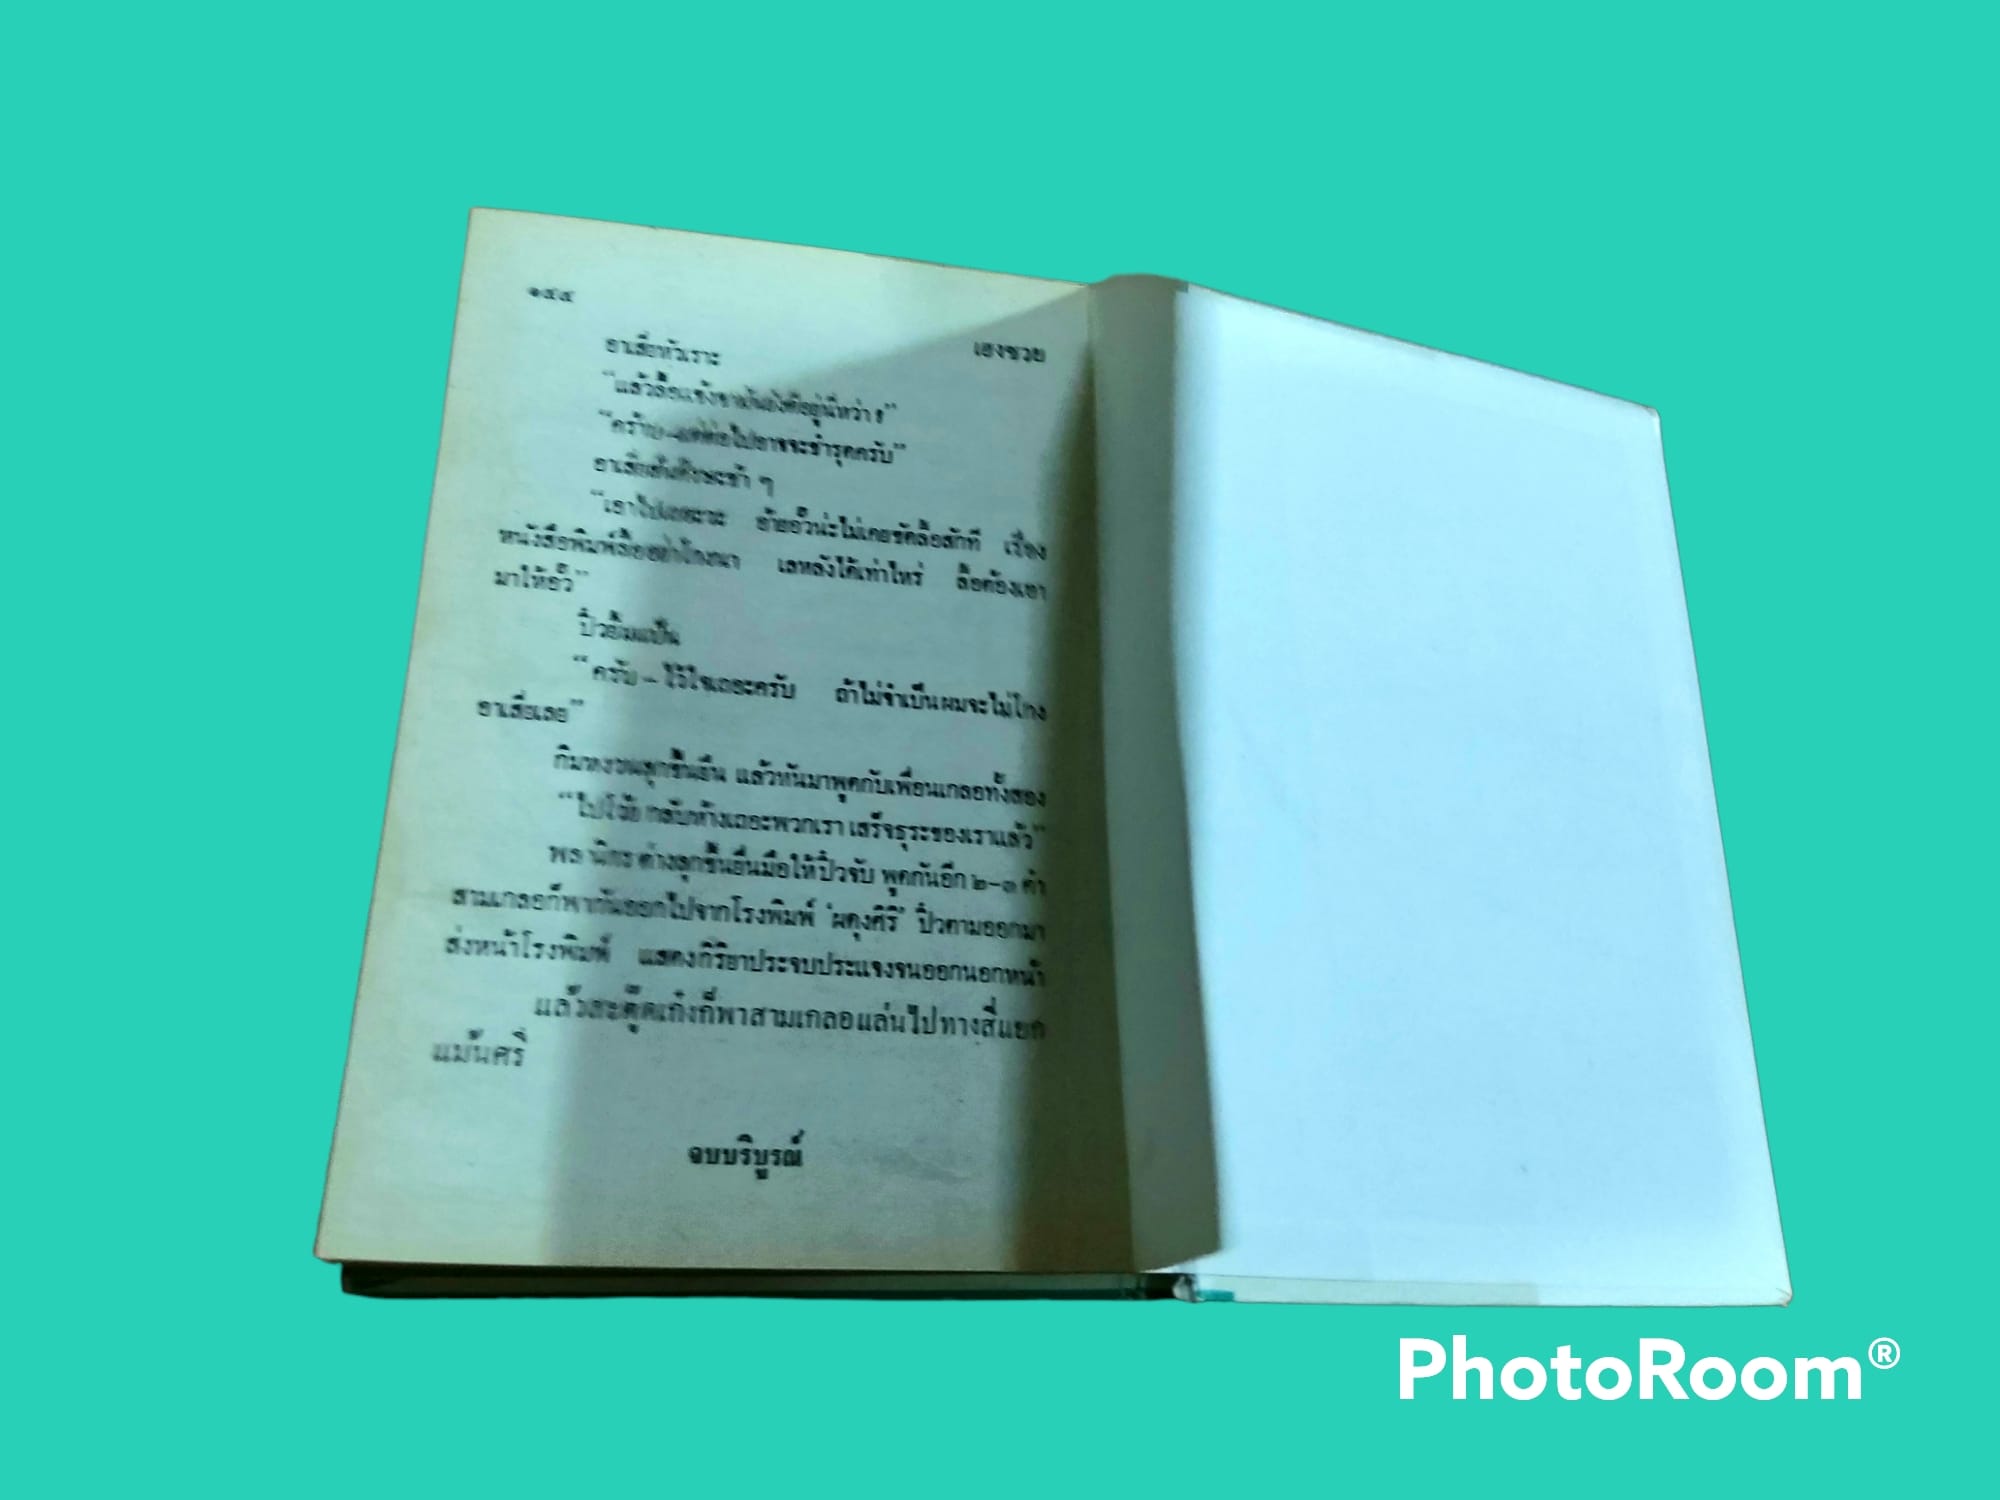 ๑๕๕
เฮงซวย
อาเสี่ยหัวเราะ
“แล้วลื้อแข้งขามันยังดีอยู่นี่หว่า
“คร้าบ-แต่ต่อไปอาจจะชำรุดครับ”
อาเสี่ยสั่นศีรษะช้า ๆ
“เอาไปเถอะวะ อ้ายอั๊วน่ะไม่เคยขัดลื้อสักที เรื่อง
หนังสือพิมพ์ลื้ออย่าโกงนา เลหลังได้เท่าไหร่ ลื้อต้องเอา
มาให้อั๊ว”
ปิ๋วยิ้มแป้น
“ครับ - ไว้ใจเถอะครับ ถ้าไม่จำเป็นผมจะไม่โกง
อาเสี่ยเลย”
กิมหงวนลุกขึ้นยืน แล้วหันมาพูดกับเพื่อนเกลอทั้งสอง
“ไปโว้ย กลับห้างเถอะพวกเรา เสร็จธุระของเราแล้ว”
พล นิกร ต่างลุกขึ้นยื่นมือให้ปิ๋วจับ พูดกันอีก ๒-๓ คำ
สามเกลอก็พากันออกไปจากโรงพิมพ์ ‘ผดุงศิริ’ ปิ๋วตามออกมา
ส่งหน้าโรงพิมพ์ แสดงกิริยาประจบประแจงจนออกนอกหน้า
แล้วสะตู๊ดเก๋งก็พาสามเกลอแล่นไปทางสี่แยก
แม้นศรี
จบบริบูรณ์
PhotoRoom®